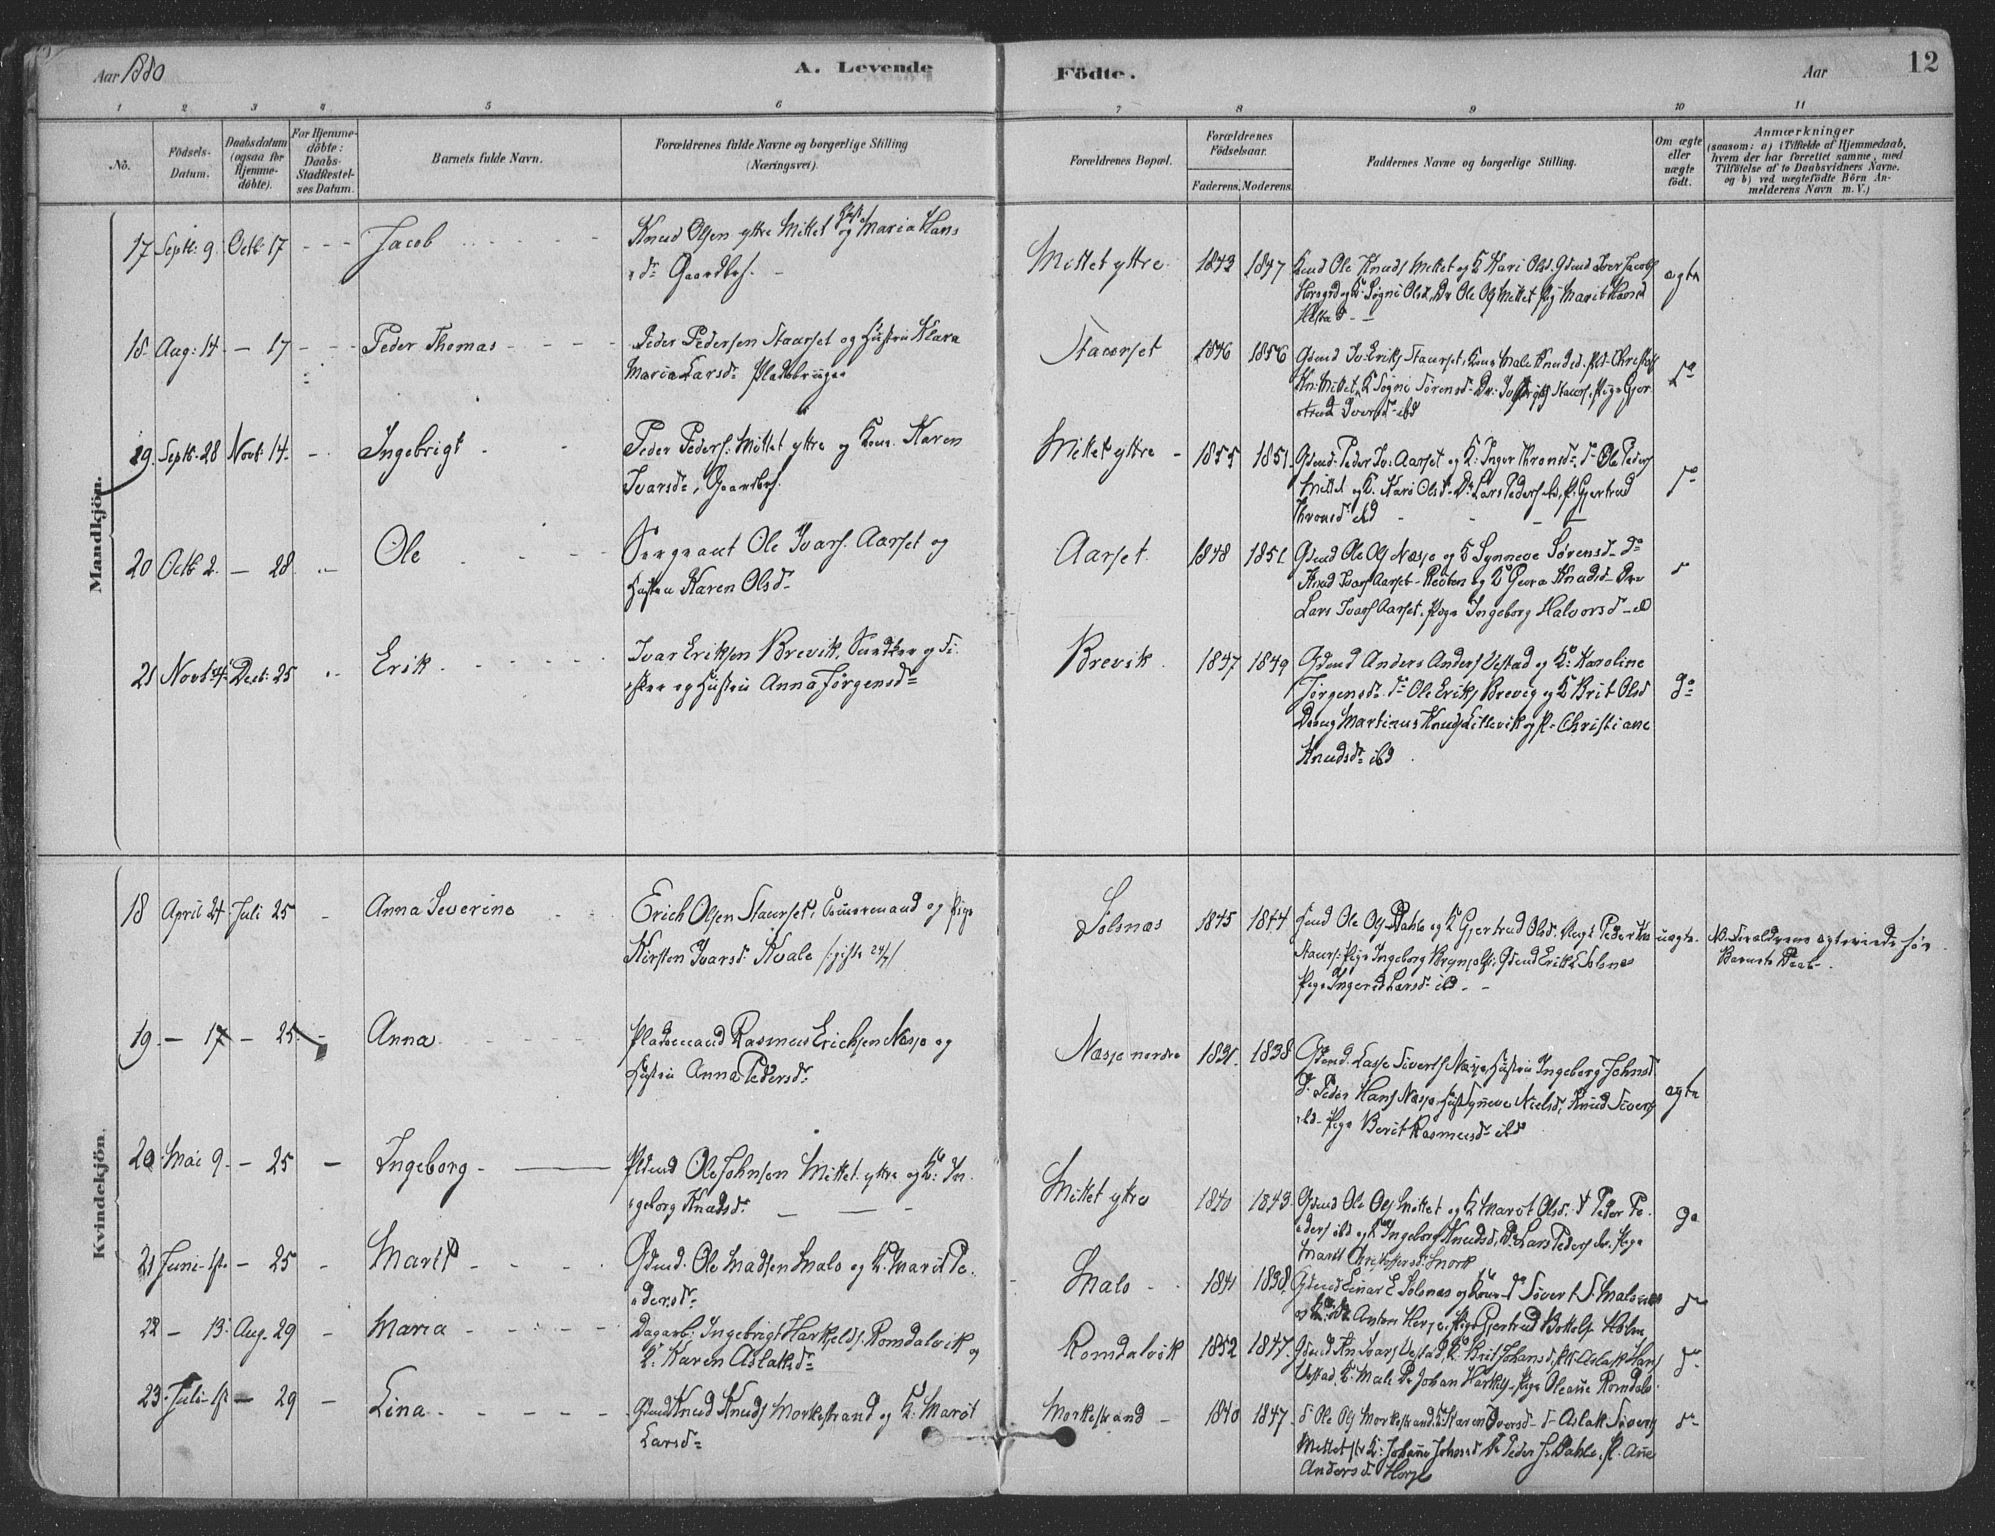 Aar 1880
A. Levende
Födte.
Aar
12
1 2 3 4 5 6 7 8 9 10 11
No.
Födsels-
Datum.
Daabsdatum
(ogsaa for
Hjemme-
döbte).
For Hjemme-
döbte:
Daabs-
Stadfæstel-
ses Datum.
Barnets fulde Navn.
Forældrenes fulde Navne og borgerlige Stilling
(Næringsvei).
Forældrenes Bopæl.
Forældrenes
Födselsaar.
Faderens. Moderens.
Faddernes Navne og borgerlige Stilling.
Om ægte
eller
uægte
födt.
Anmærkninger
(saasom: a) i Tilfælde af Hjemmedaab,
hvem der har forrettet samme, med
Tilföielse af to Daabsvidners Navne.
og b) ved uægtefödte Börn An-
melderens Navn m. V.)
Mandkjön.
17 Septb. 9. Octb. 17 Jacob
Knud Olsen ytre Mittet og Maria Hans
dr Gaardbr.
Mittet yttre 1843 1847
Gmd Ole Knuds Mittet og K Kari Olsd. Gdmd Iver Jacobs
Horsgd og K. Sogni Olsd. Dr Ole Ols Mittet Pig Marit Hansd
ægte
18 Aug: 14. — 17 Peder Thomas
Peder Pedersen Staurset og Hustru Klara
Maria Larsdr. Pladsbruger
Staurset 1846 1856
Gdmd Iv. Eriks Staurset, Kone Male Knudsd. Pst. Christof
Kn. Mittet, K Sogni Sörensd. Dr. Staurs. Pige Gjer
trud Iversd. ibd
do
19. Septb. 28 Novb. 14. Ingebrigt
Peder Peders. Mittet ytre og Kone Karen
Ivarsdr, Gaardbr.
Mittet yttre 1855 1851.
Gdmd. Peder Iv. Aarset og K. Inger Thronsd. do Ole Peders
Mittet og K. Kari Olsd. Dr. Lars Peders ibd, P. Gjertrud
Thronsd. ibd
do
20 Octb 2. — 28 Ole
Sergeant Ole Ivars. Aarset og
Hustru Karen Olsdr.
Aarset 1848 1851
Gdmd Ole Ols Næsje og K Synneve Sörensd do
Knud Ivars Aarset og K Knudsd. Dr
Lars Ivars Aarset, Pige Ingeborg Halvorsd ibd
21 Novb 4. Decb: 25 Erik
Ivar Eriksen Brevik, og Fi
sker og Hustru Anna Jörgensdr.
Brevik. 1847 1849
Gdmd Anders Anders Vestad og K. Karoline
Jörgensd. do Ole Eriks Brevig og K Brit Olsd
Dreng Martinus Knuds Lillevik og P. Christiane
Knudsdr ibd.
do
Kvindekjön.
18 April 24. Juli 25 Anna Severine
Erich Olsen Staurset, Ungkarl og Pige
Kirsten Ivarsd. Kvale /: gifte 24/7 /
Solsnæs 1845 1844
Gmd Ole Ols Dahle og K Gjertrud Olsd. Ungk Peder
Staurs. Pige Ingeborg Brynjolfs. Gdmd Erik Solsnæs
Pige Ingeri Larsdr ibd.
uægte. NB. Forældrene ægteviede för
Barnets Daab.
19. — 17 — 25 Anna
Pladsmand Rasmus Erichsen Næsje og
Hustru Anna Pedersdr.
Næsje nordre 1831. 1838
Gdmd. Lasse Siverts Næsje, Hustru Ingeborg Johnsd
do Peder Hans Næsje, Hust Synneve Nielsd, Knud Siverts
ibd. Pige Berit Rasmusdr ibd
ægte
20. Mai 9. — 25 — Ingeborg
Plmd Ole Johnsen Mittet ytre og K. In
geborg Knudsdr.
Mittet ytre 1840 1843.
Gdmd Ole Ols Mittet og K Marit Olsd. do Peder Pe
ders ibd og K Ingeborg Knudsd, Dr Lars Peders ib. Pige
Marit Christoffersd.
do
21 Juni 1ste — 25 Marit
Gdmd. Ole Madsen Malo og K. Marit Pe
dersdr.
Malo 1841 1838.
Gdmd Einar E Solsnæs og Kone do Sivert S. Malo
Anton Herje, Pige Gjertrud Bottolfs Holm
do
22 — 13. Aug. 29 Maria
Dagarb. Ingebrigt Harkelds. Romdalsvik og
K. Karen Aslaksdr
Romdalsvik 1852 1847.
Gdmd Kn Ivars Vestad, K. Brit Johansd, Aslak Hans
Vestad, K. Male Dr Johan Harkelds. Pige Oleane Romdals.
do
23. Juli 18 — 29 Lina
Gdmd Knud Knuds Morkestrand og K. Marit
Larsdr.
Morkestrand 1840 1847.
do Ole Ols Morkestrand, K Karen Iversd. do Aslak Siverts
Mittet K. Johanne Johnsd. Dr Peder J. Dahle, P. Ane
Andersd. Horje
do